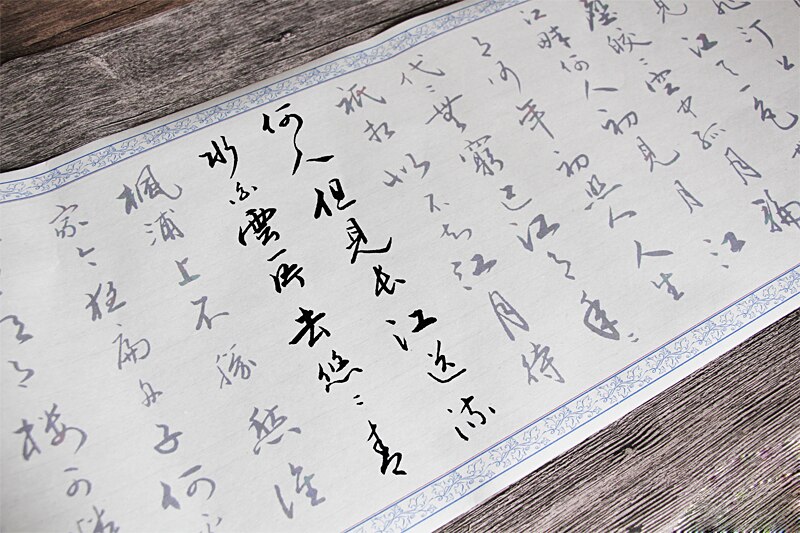 見江天一色無
塵皎〻空中孤月輪
江畔何人初見月江
月何年初照人人生
代〻無窮已江月年〻
祇相似不知江月待
何人但見長江送流
水白雲一片去悠〻青
楓浦上不勝愁誰
家今夜扁舟子何
明月樓可憐